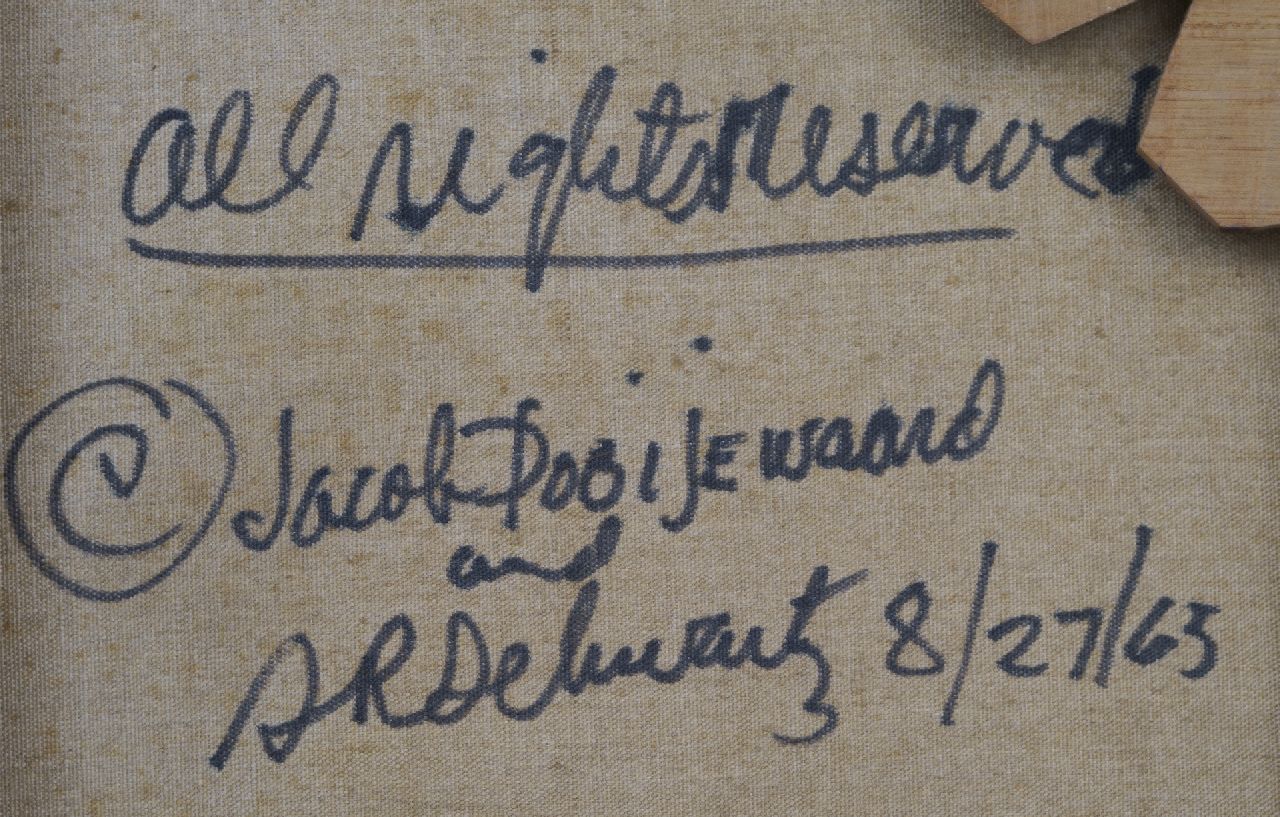 all rights reserved
© Jacob Dobijewaard
and
SR Schwartz 8/27/63